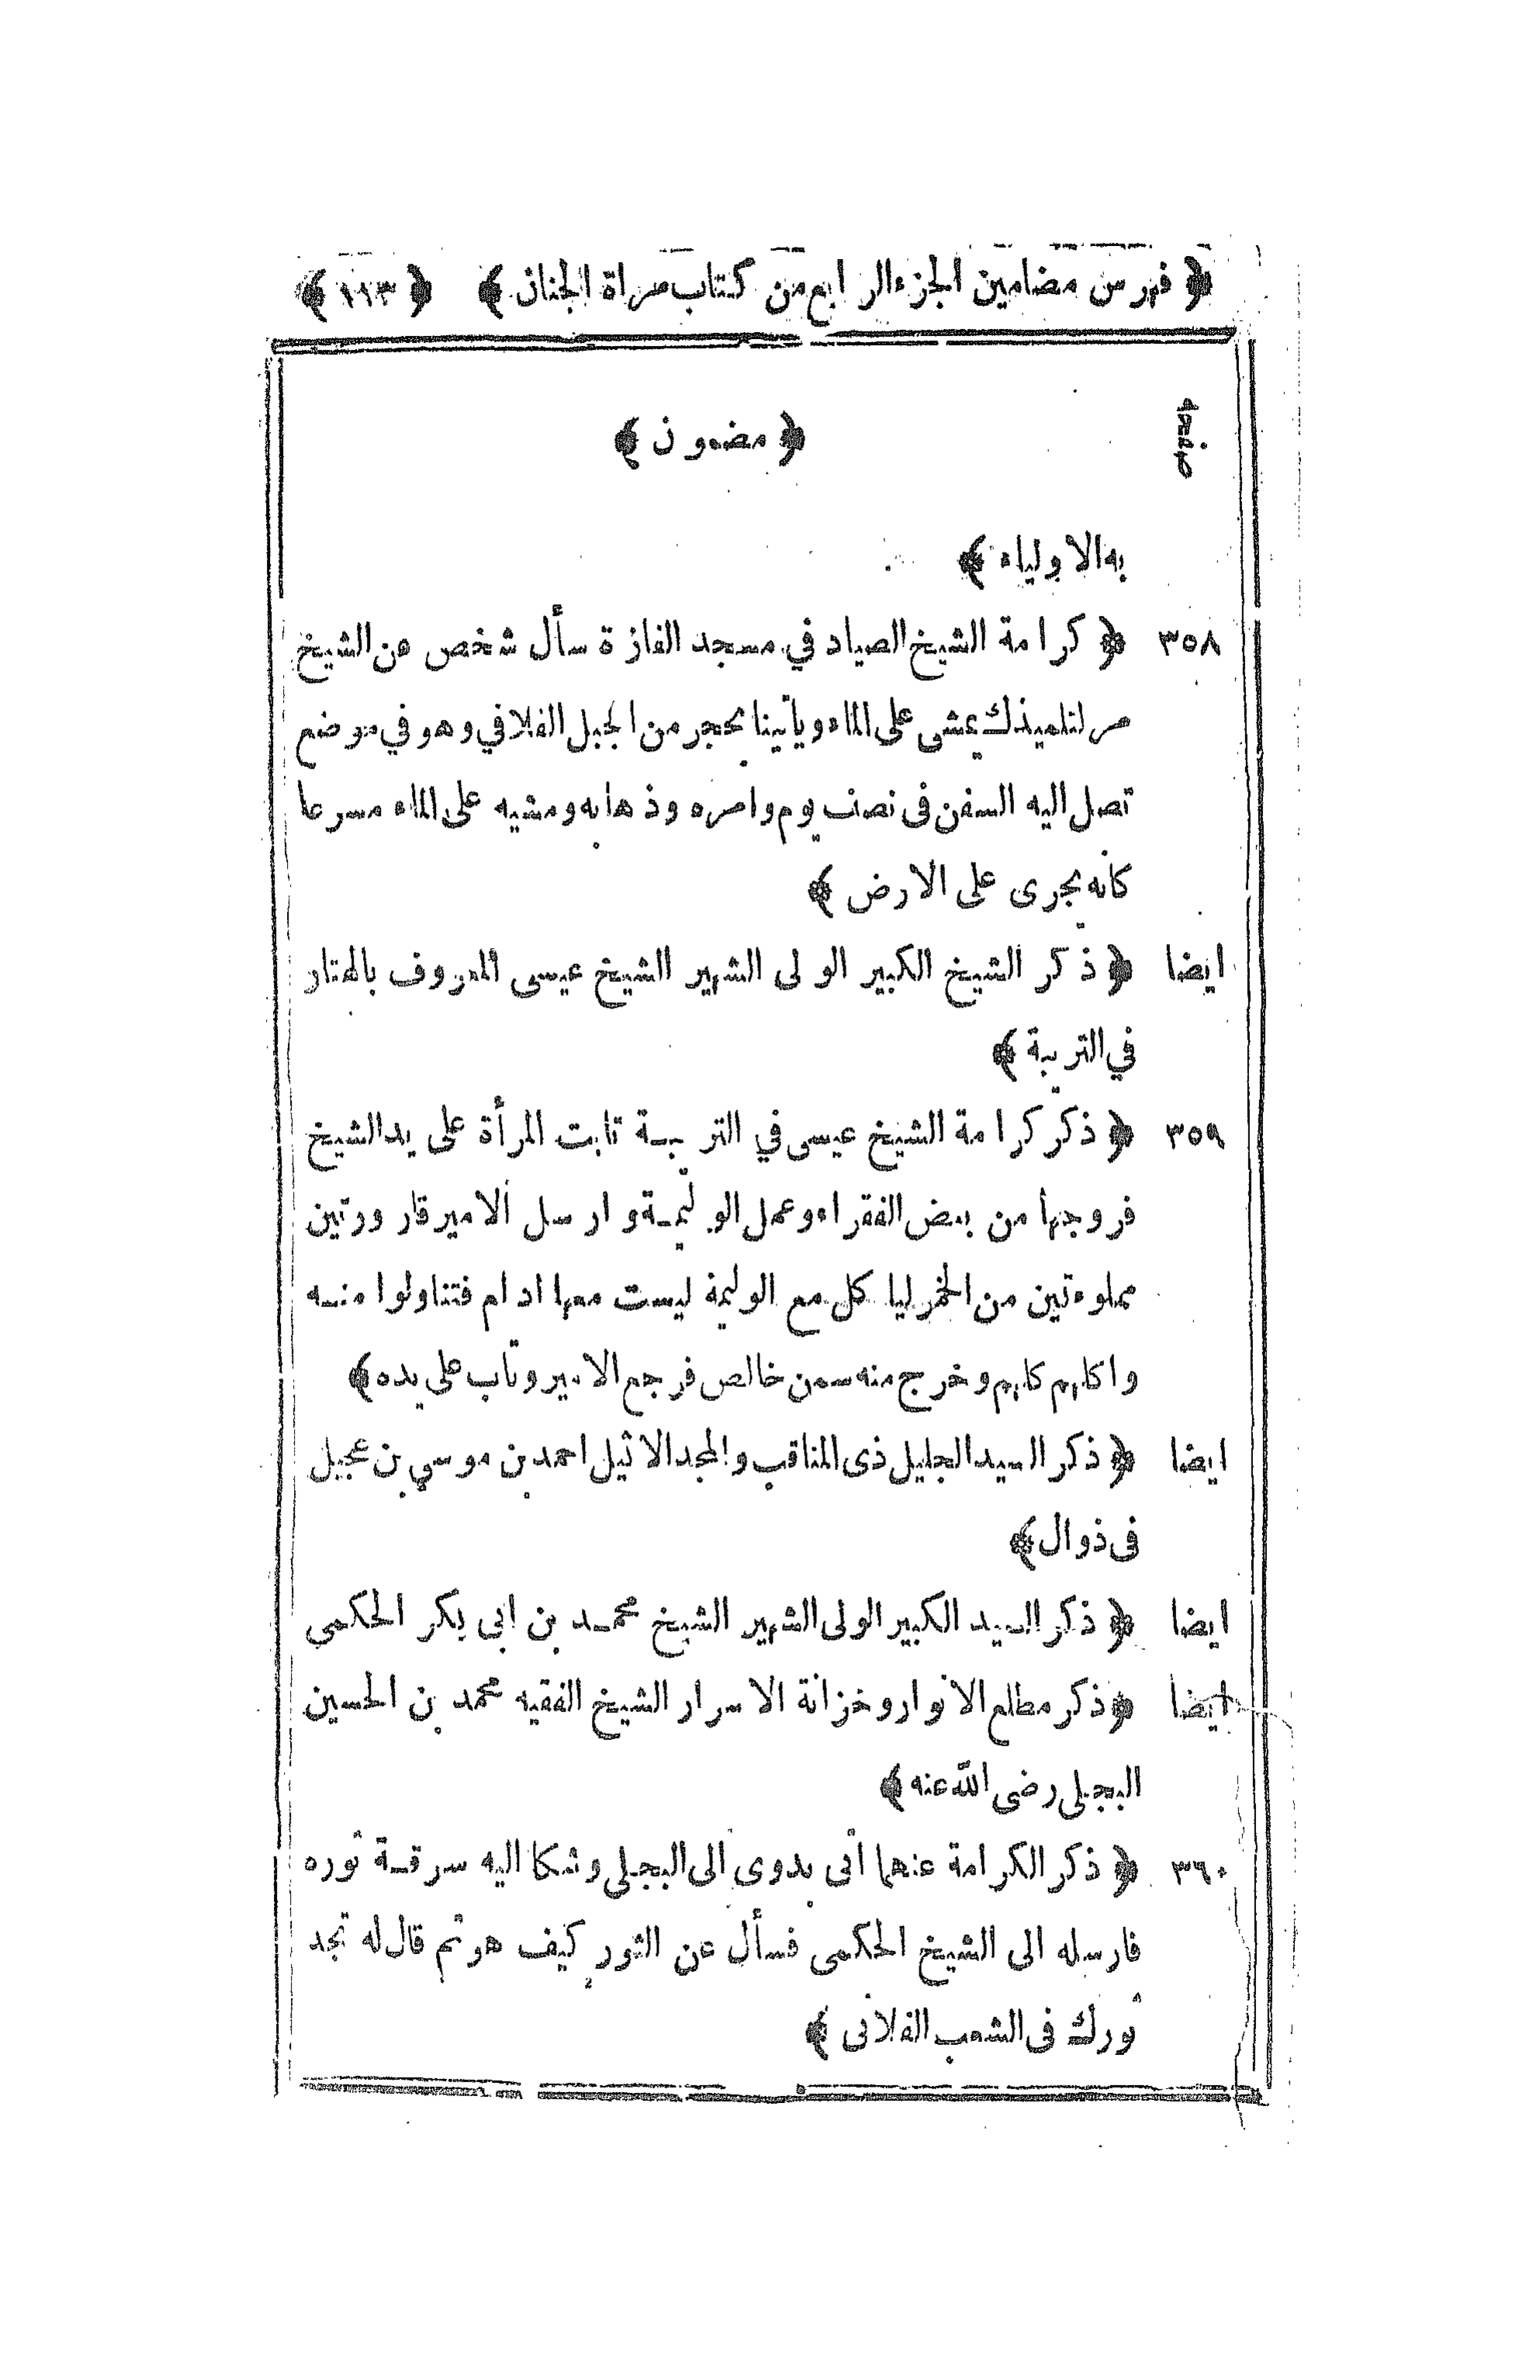 ﴿ فهرس مضامين الجزء الرابع من كتاب مراة الجنان ﴾ ﴿ ١١٣ ﴾
صفحه ﴿ مضمون ﴾
به الاولياء ﴾
٣٥٨ ﴿ كرامة الشيخ الصياد في مسجد الفازة سأل شخص من الشيخ
مر لتلميذك يمشى على الماء ويأتينا بحجر من الجبل الفلاني وهو في موضع
تصل اليه السفن فى نصف يوم وامره وذهابه ومشيه على الماء مسرعا
كانه يجرى على الارض ﴾
ايضا ﴿ ذكر الشيخ الكبير الولى الشهير الشيخ عيسى المعروف بالهتار
في التربية ﴾
٣٥٩ ﴿ ذكر كرامة الشيخ عيسى في التربية تابت المرأة على يد الشيخ
فزوجها من بعض الفقراء وعمل الوليمة وارسل الامير قارورتين
مملوءتين من الخمر لياكل مع الوليمة ليست معها ادام فتناولوا منه
واكلهم كلهم وخرج منه سمن خالص فرجع الامير وتاب على يده ﴾
ايضا ﴿ ذكر السيد الجليل ذى المناقب والمجد الاثيل احمد بن موسي بن عجيل
فى ذوال ﴾
ايضا ﴿ ذكر السيد الكبير الولى الشهير الشيخ محمد بن ابى بكر الحكمي
ايضا ﴿ ذكر مطلع الانوار وخزانة الاسرار الشيخ الفقيه محمد بن الحسين
البجلى رضى الله عنه ﴾
٣٦٠ ﴿ ذكر الكرامة عنهما اتى بدوى الى البجلى وشكا اليه سرقة ثوره
فارسله الى الشيخ الحكمى فسأل عن الثور كيف هو ثم قال له تجد
ثورك فى الشعب الفلانى ﴾